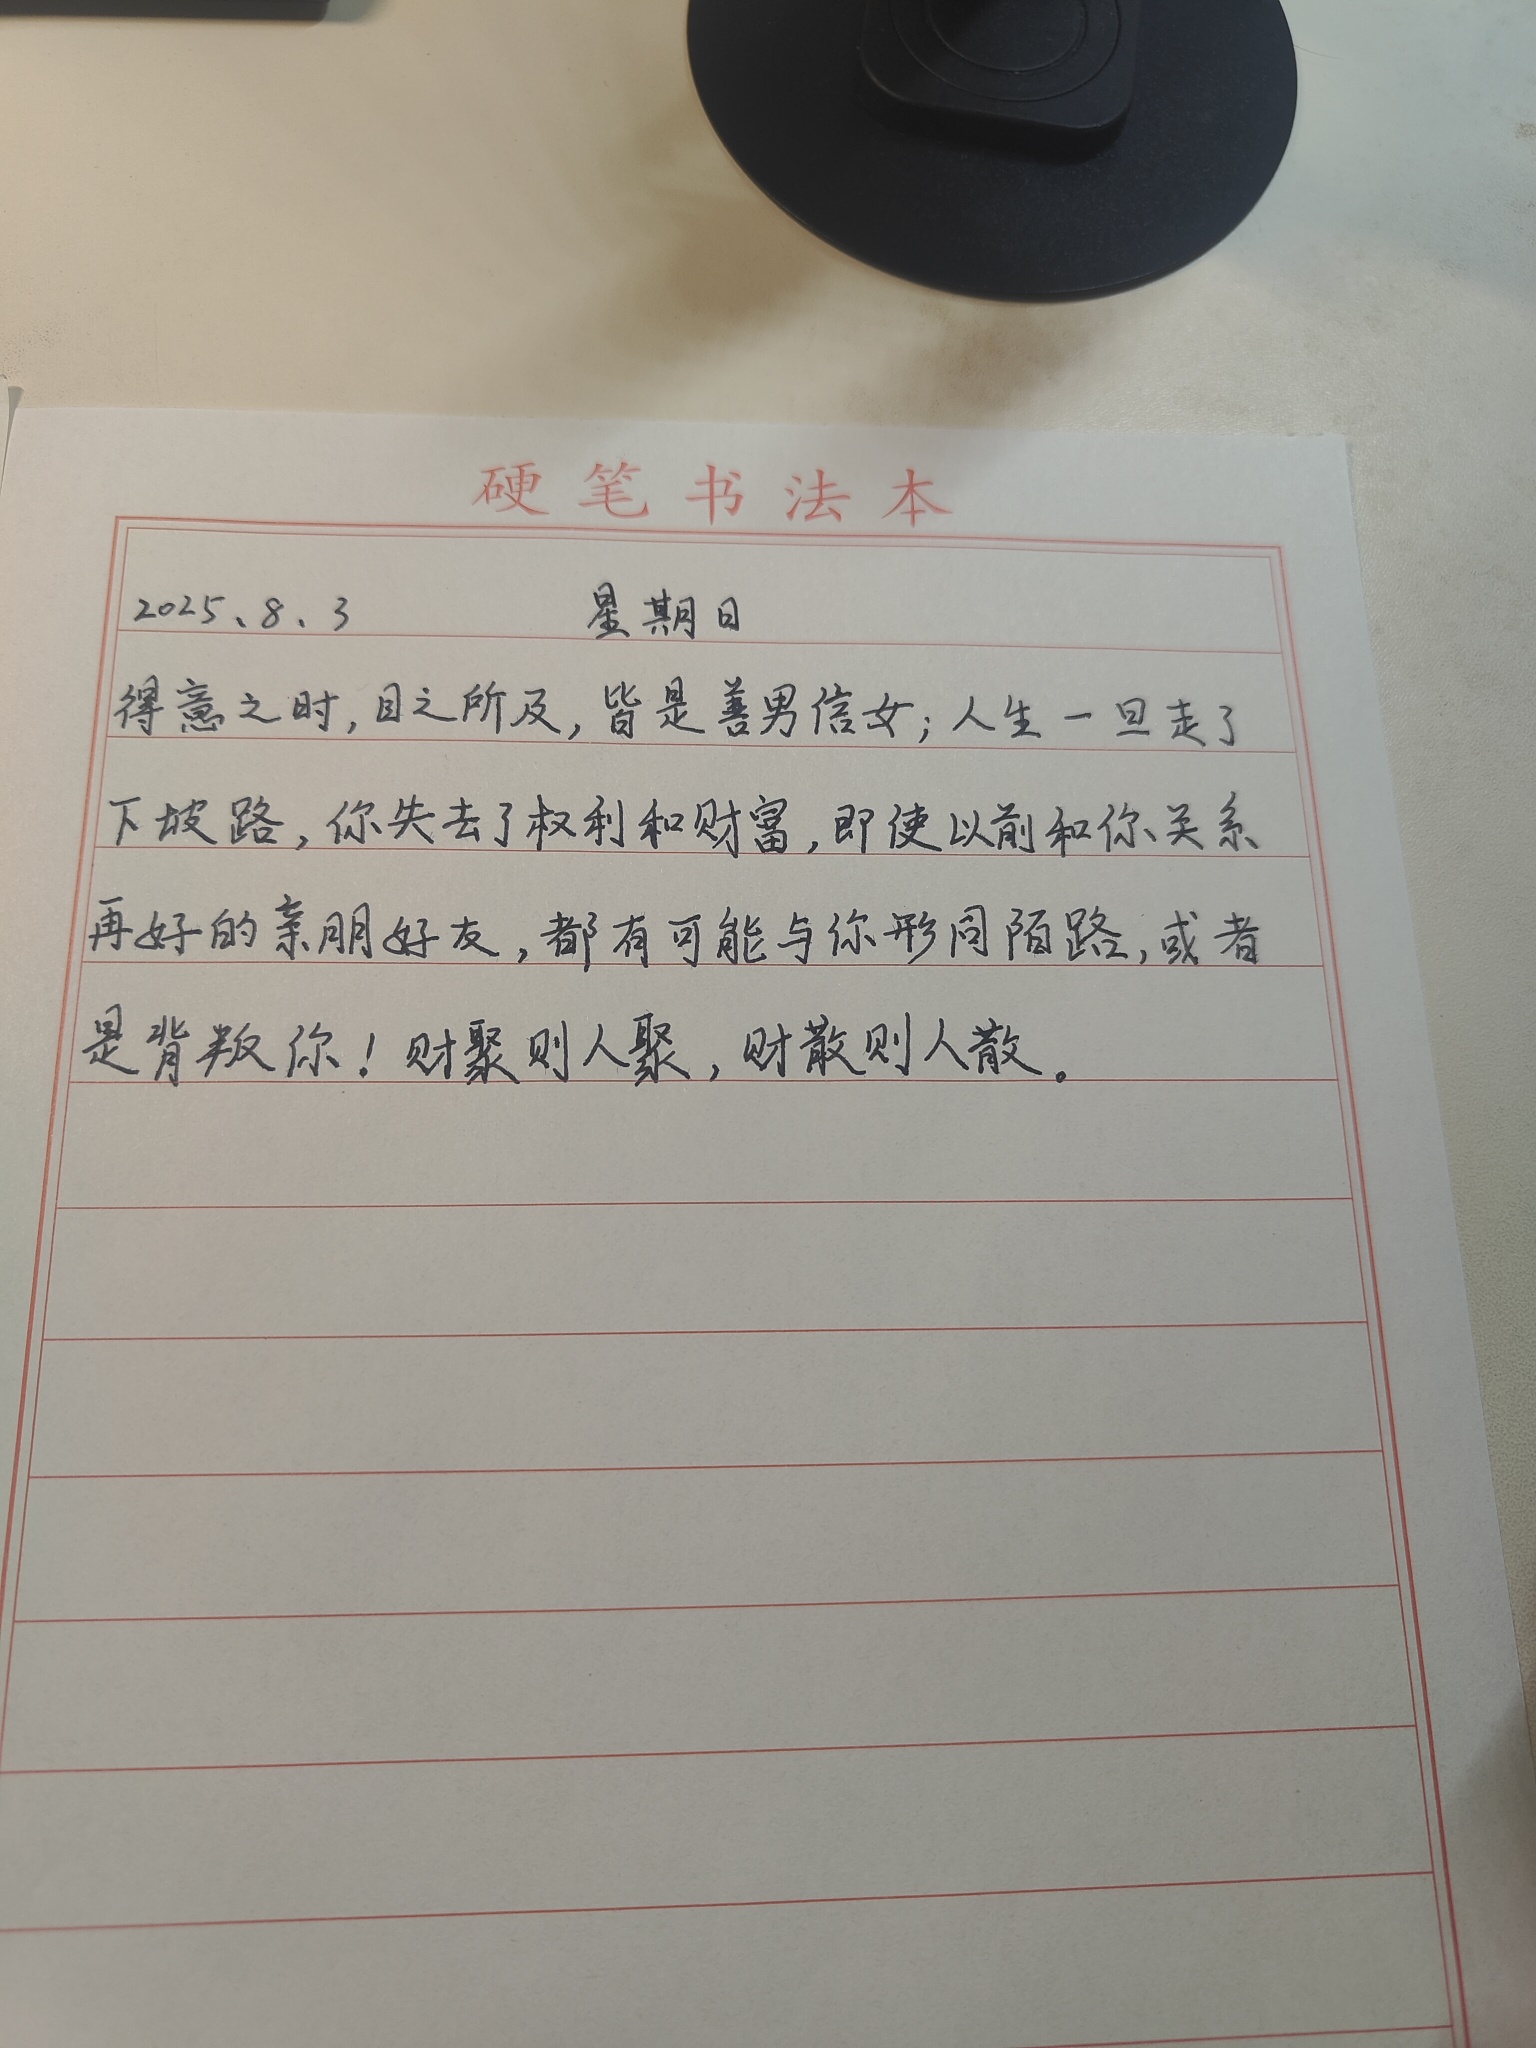 硬笔书法本
2025、8、3 星期日
得意之时,目之所及,皆是善男信女;人生一旦走了
下坡路,你失去了权利和财富,即使以前和你关系
再好的亲朋好友,都有可能与你形同陌路,或者
是背叛你!财聚则人聚,财散则人散。